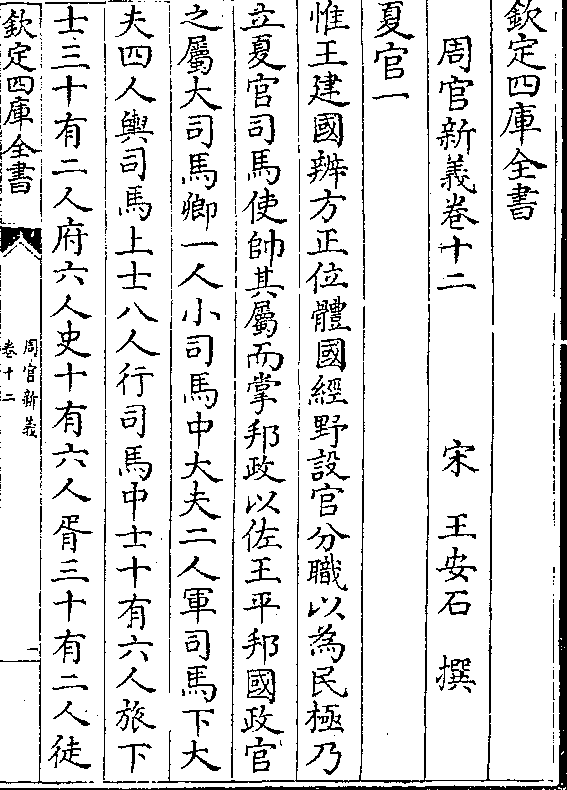 欽定四庫全書
周官新義卷十二
宋 王安石 撰
夏官一
惟王建國辨方正位體國經野設官分職以為民極乃
立夏官司馬使帥其屬而掌邦政以佐王平邦國政官
之屬大司馬卿一人小司馬中大夫二人軍司馬下大
夫四人輿司馬上士八人行司馬中士十有六人旅下
士三十有二人府六人史十有六人胥三十有二人徒
欽定四庫全書
周官新義
卷十二
一